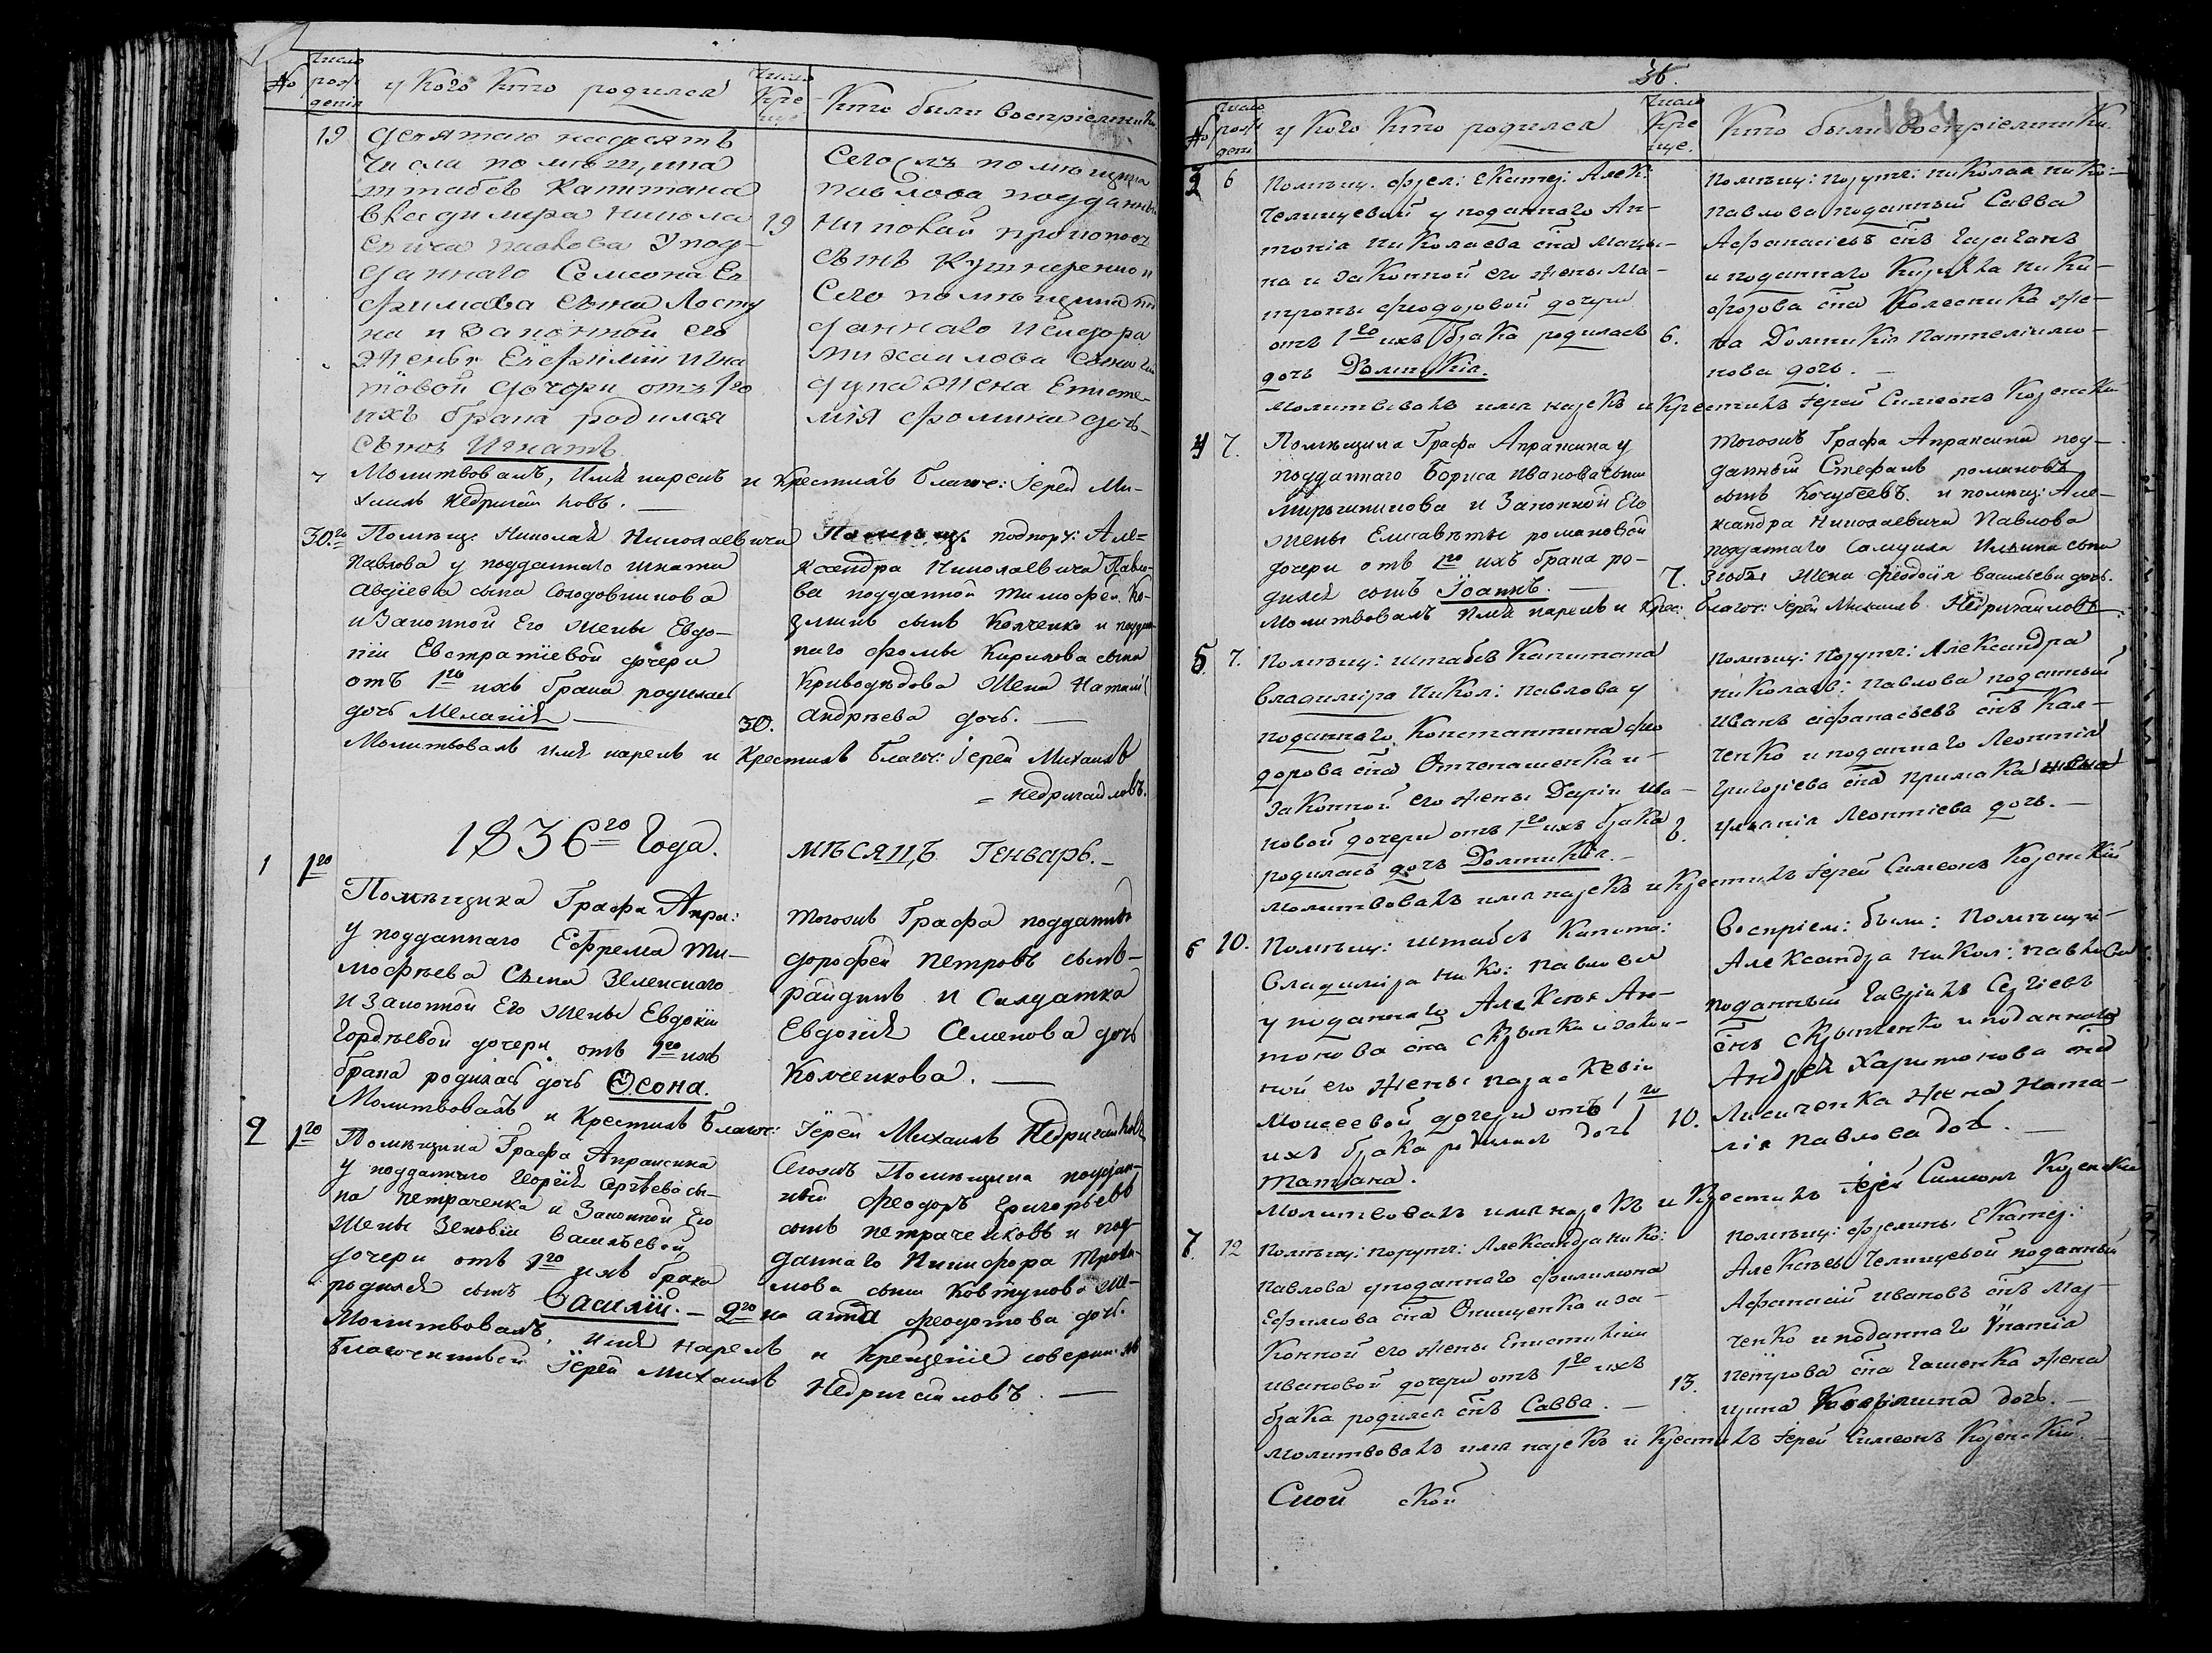 №
Число рожденія
у кого кто родился
Число Кре-
Кто были воспріемники
19
девятаго надесять
числа помѣщика
штабсъ капитана
Владимира Никола
евича Павлова у под-
даннаго Симеона Ев
фимова сына Ласту
на и законной его
жены Евфиміи Игна
товой дочери отъ 1го
ихъ брака родился
сынъ Игнатъ
19
Сего помѣщика
Павлова подданный
Николай Прокопо
сынъ
Сего помѣщика под
даннаго Исидора
Михаилова сына
жена Епистe-
мія Фомина дочь
Молитвовалъ, имя нарекъ и крестилъ Благоч: Іерей Ми-
хаилъ Недригайловъ.
30го
Помѣщ: Николая Николаевича
Павлова у подданнаго Игната
Авдіева сына Солодовникова
и законной его жены Евдо-
кіи Евстратіевой дочери
отъ 1го ихъ брака родилась
дочь Меланія
30.
Помѣщ: подпору: Але=
ксандра Николаевича Павло-
ва подданной Тимофей Ко-
зминъ сынъ Колченко и поддан
наго Фомы Кирилова сына
Криводѣдова жена Наталія
Андрѣева дочь.
Молитвовалъ имя нарекъ и крестилъ Благоч: Іерей Михаилъ
= Недригайловъ.
1836го Года.
Мѣсяцъ Генварь.
1
1го
Помѣщика Графа Апра:
у подданнаго Ефрема Ти-
мофѣева сына Зеленскаго
и законной его жены Евдокіи
Гордѣевой дочери отъ 1го ихъ
брака родилась дочь Ѳеона.
Тогожъ Графа подданный
Дорофей Петровъ сынъ-
Райдинъ и Салдатка
Евдокія Семенова дочь
Колченкова.
Молитвовалъ и крестилъ Благоч: Іерей Михаилъ Недригайловъ
2
1го
Помѣщика Графа Апраксина
у подданнаго Георгія Сергѣева сы-
на Петраченка и законной его
жены Зеновіи Васильевой
дочери отъ 1го ихъ брака
родился сынъ Василій.
2го
Сегожъ Помѣщика поддан-
ный Феодоръ Григорьевъ
сынъ Петраченковъ и под-
даннаго Никифора Трохи-
мова сына Ковтунова же-
на Феодотова дочь.
Молитвовалъ, имя нарекъ и крещеніе совершилъ
Благочинный Іерей Михаилъ Недригайловъ.
36.
164
№
Число рожденi
у кого кто родился
Число Кре ще.
Кто были воспріемники
3
6
Помѣщ. фрел: Екатер: Алек:
Челищевой у поданнаго Ан-
тонія Николаева сна Мацы-
на и законной его жены Ма-
троны Феодоровой дочери
отъ 1го ихъ брака родилась
дочь Домникія.
6.
Помѣщ: поруч: Николая Нико:
Павлова поданный Савва
Афанасіевъ снъ Гараганъ
и поданнаго Кирилла Ники-
форова сна Колесника же-
на Домникія Пантелимо-
нова дочь.
Молитвовалъ имя нарекъ и крестилъ Іерей Симеонъ Козенскій
4
7.
Помѣщика Графа Апраксина у
подданнаго Бориса Иванова сына
Мирошникова и законной его
жены Елисаветы Романовой
дочери отъ 1го ихъ брака ро-
дился сынъ Іоаннъ.
7.
Тогожъ Графа Апраксина под-
данный Стефанъ Романовъ
сынъ Кочубеевъ. и помѣщ: Але-
ксандра Николаевича Павлова
подданнаго Самуила Ильина сына
Злобы жена Феодосія Васильева дочь.
Молитвовалъ имя нарекъ и крес: Благоч: Іерей Михаилъ Недригайловъ
5
7.
Помѣщ: штабсъ капитана
Владимира Никол: Павлова у
поданнаго Константина Фео
дорова сна Отченашенка и-
законной его жены Даріи Ива-
новой дочери отъ 1го ихъ брака
родилась дочь Домникія.
8.
Помѣщ: поруч: Александра
Николаев: Павлова поданный
Иванъ Афанасьевъ снъ Кол-
ченко и поданнаго Леонтія
Григоріева сна Примака жена
Уліанія Леонтіева дочь.
Молитвовалъ имя нарекъ и крестилъ Іерей Симеонъ Козенскій
6
10.
Помѣщ: штабсъ Капита:
Владимира Нико: Павлова
у поданнаго Алексѣя Ан-
тонова сна Скрынки и закон-
ной его жены Параскевіи
Моисеевой дочери отъ 1го
ихъ брака родилась дочь
Татіана.
10.
Воспріем: были: Помѣщи-
Александра Никол: Павлова
поданный Гавріилъ Сергіевъ
снъ Скрыпченко и поданнаго
Андрея Харитонова сна
Лисиченка жена Ната-
лія Павлова дочь.
Молитвовалъ имя нарекъ и крестилъ Іерей Симеонъ Козенскій
7.
12
Помѣщ: поруч: Александра Нико:
Павлова у поданнаго Филимона
Ефимова сна Онищенка и за-
конной его жены Епистиміи
Ивановой дочери отъ 1го ихъ
брака родился снъ Савва.
13.
помѣщ: фрелины Екатер:
Алексѣев Челищевой поданный
Афанасій Ивановъ снъ Мар-
ченко и поданнаго Ипатія
Петрова сна Гашенка жена
дочь.
Молитвовалъ имя нарекъ и крестилъ Іерей Симеонъ Козенскій.